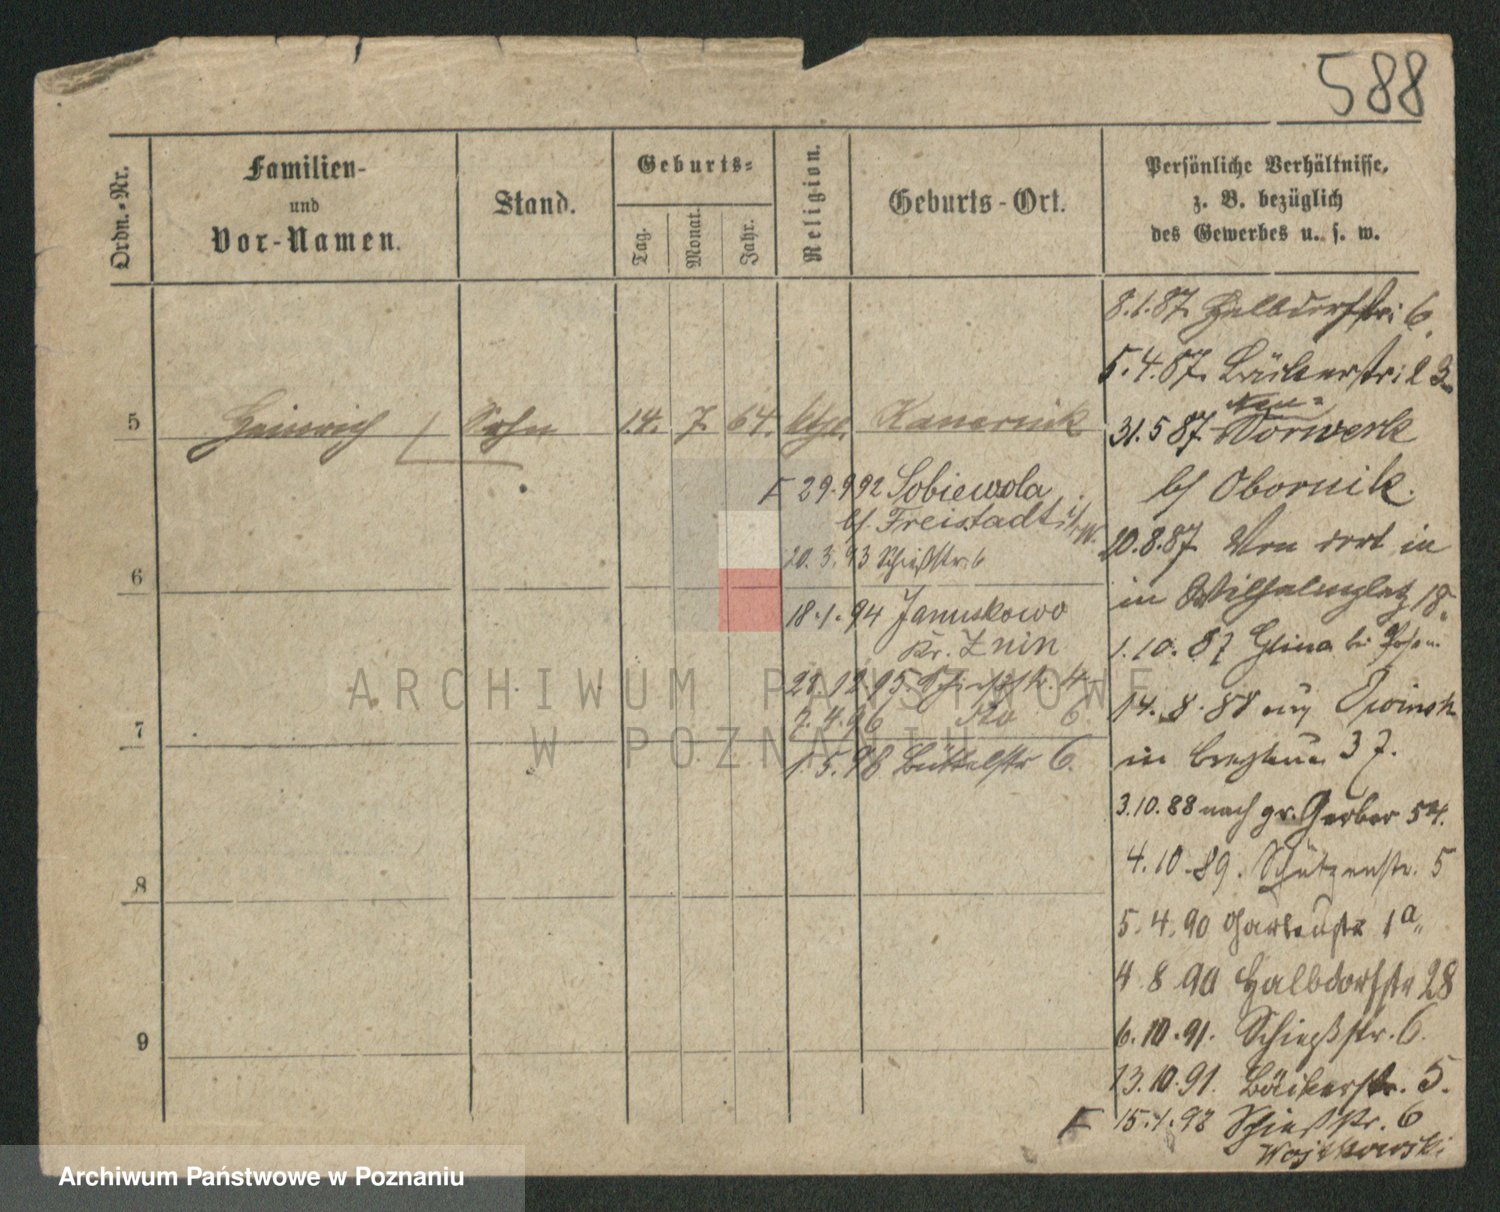 588
Ordn.-Nr.
Familien-
und
Vor-Namen.
Stand.
Geburts-
Tag.
Monat.
Jahr.
Religion.
Geburts-Ort.
Persönliche Verhältnisse,
z. B. bezüglich
des Gewerbes u. s. w.
5
Heinrich Sohn 14. 7. 64. ktl.
6
7
8
9
29.9 92 Sobiewola
b/ Freistadt i/W.
20. 3. 93 Schießstr. 6
18.1.94 Januskowo
Kr. Znin
28.12.95. Schießstr. 4
7.4.96 6
1.5.98 Büttelstr 6.
8.1.87. Halbdorfstr: 6.
5.4.87. Bäckerstr: 23
Neu-
31.5 87. Vorwerk
b/ Obornik.
20.8.87 Von dort in
in Wilhelmsplatz 18.
1.10.87 Glina bei Posen
14.8.88 aus Owinsk
in 37.
3.10.88 nach gr. Gerber 54.
4.10.89. Schützenstr. 5
5.4.90 Gartenstr 1a
4 8 90 Halbdorfstr 28
6.10.91. Schießstr. 6.
13.10.91. Bäckerstr. 5.
15.1.92 Schießstr. 6
Wojtkowski
ARCHIWUM PAŃSTWOWE
W POZNANIU
Archiwum Państwowe w Poznaniu